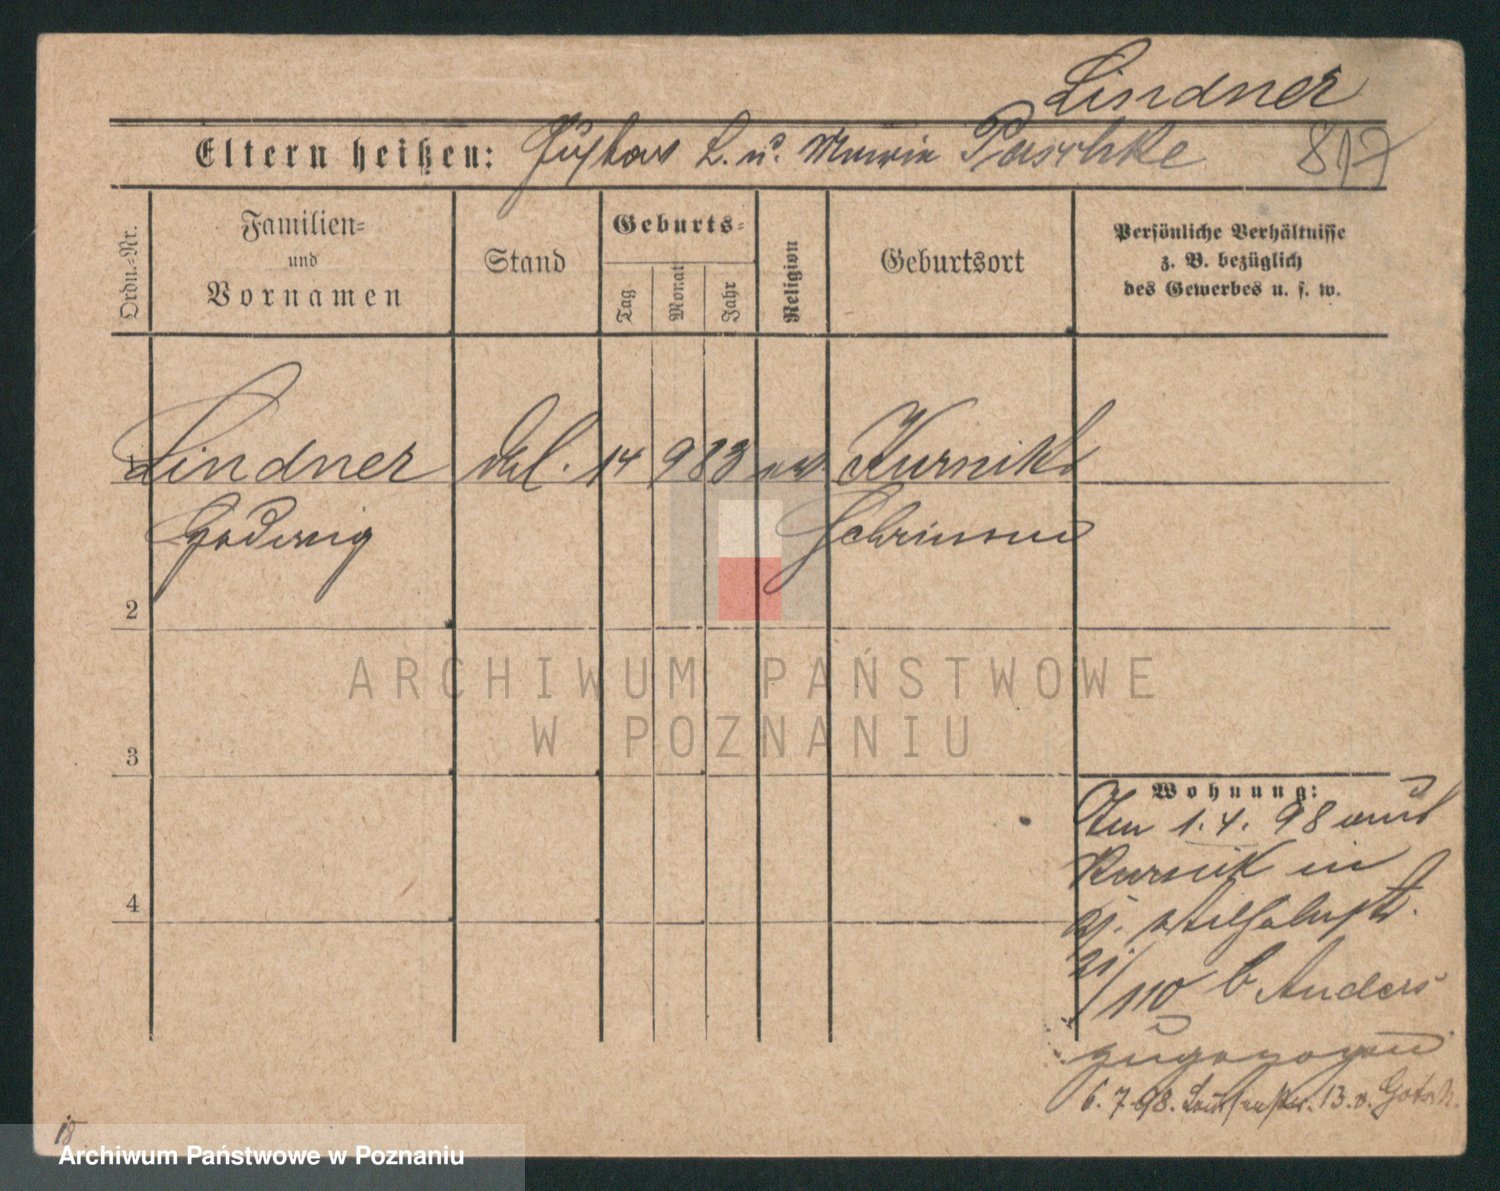 Lindner
Eltern heißen: Gustav L. u. Maria Paschke 817
Ordn.-Nr.
Familien-
und
Vornamen
Stand
Geburts-
Tag
Monat
Jahr
Religion
Geburtsort
Persönliche Verhältnisse
z. B. bezüglich
des Gewerbes u. s. w.
Lindner 14 9 83 ev Kurnik
Hedwig Schrimm
2
3
4
Wohnung:
Am 1.4. 98 aus
Kurnik in
Wilhelmstr.
110 b Anders
zugezogen
6. 7. 98. 13. b.
18
ARCHIWUM PAŃSTWOWE
W POZNANIU
Archiwum Państwowe w Poznaniu